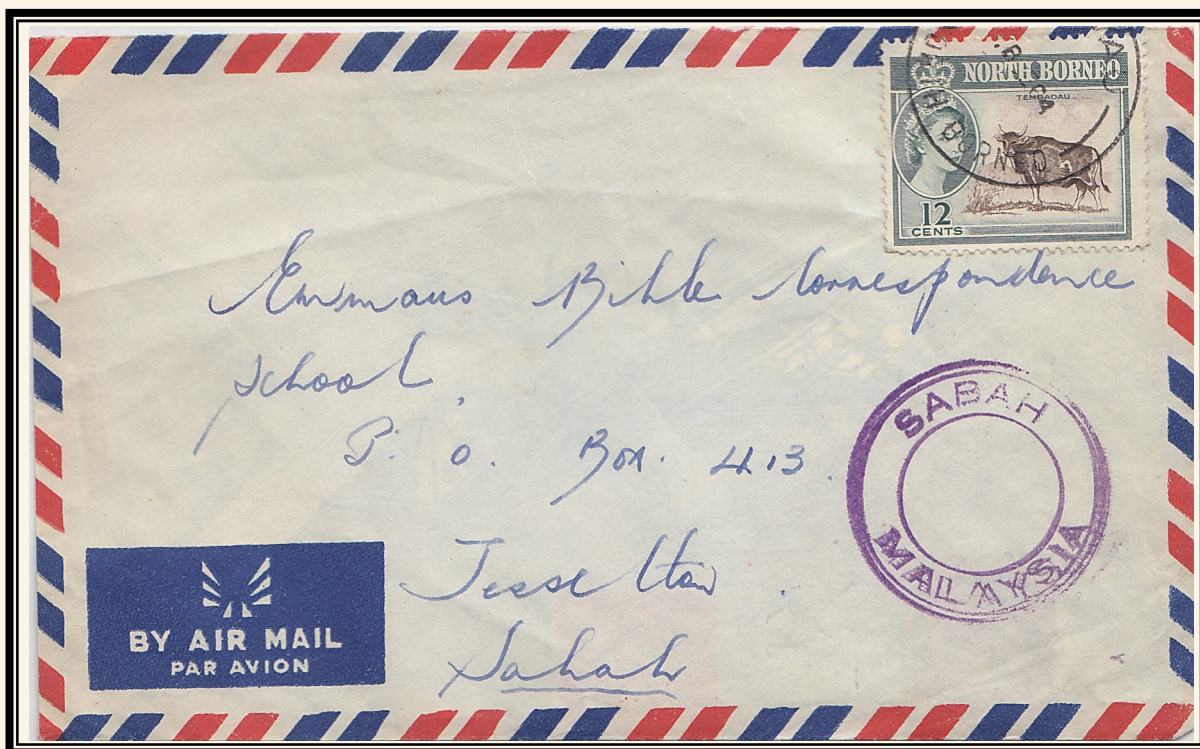 NORTH BORNEO
TEMBADAU
12
CENTS
BORNEO
Emmaus Bible Correspondence
School,
P. O. Box. 413.
Jesselton.
Sabah
SABAH
MALAYSIA
BY AIR MAIL
PAR AVION